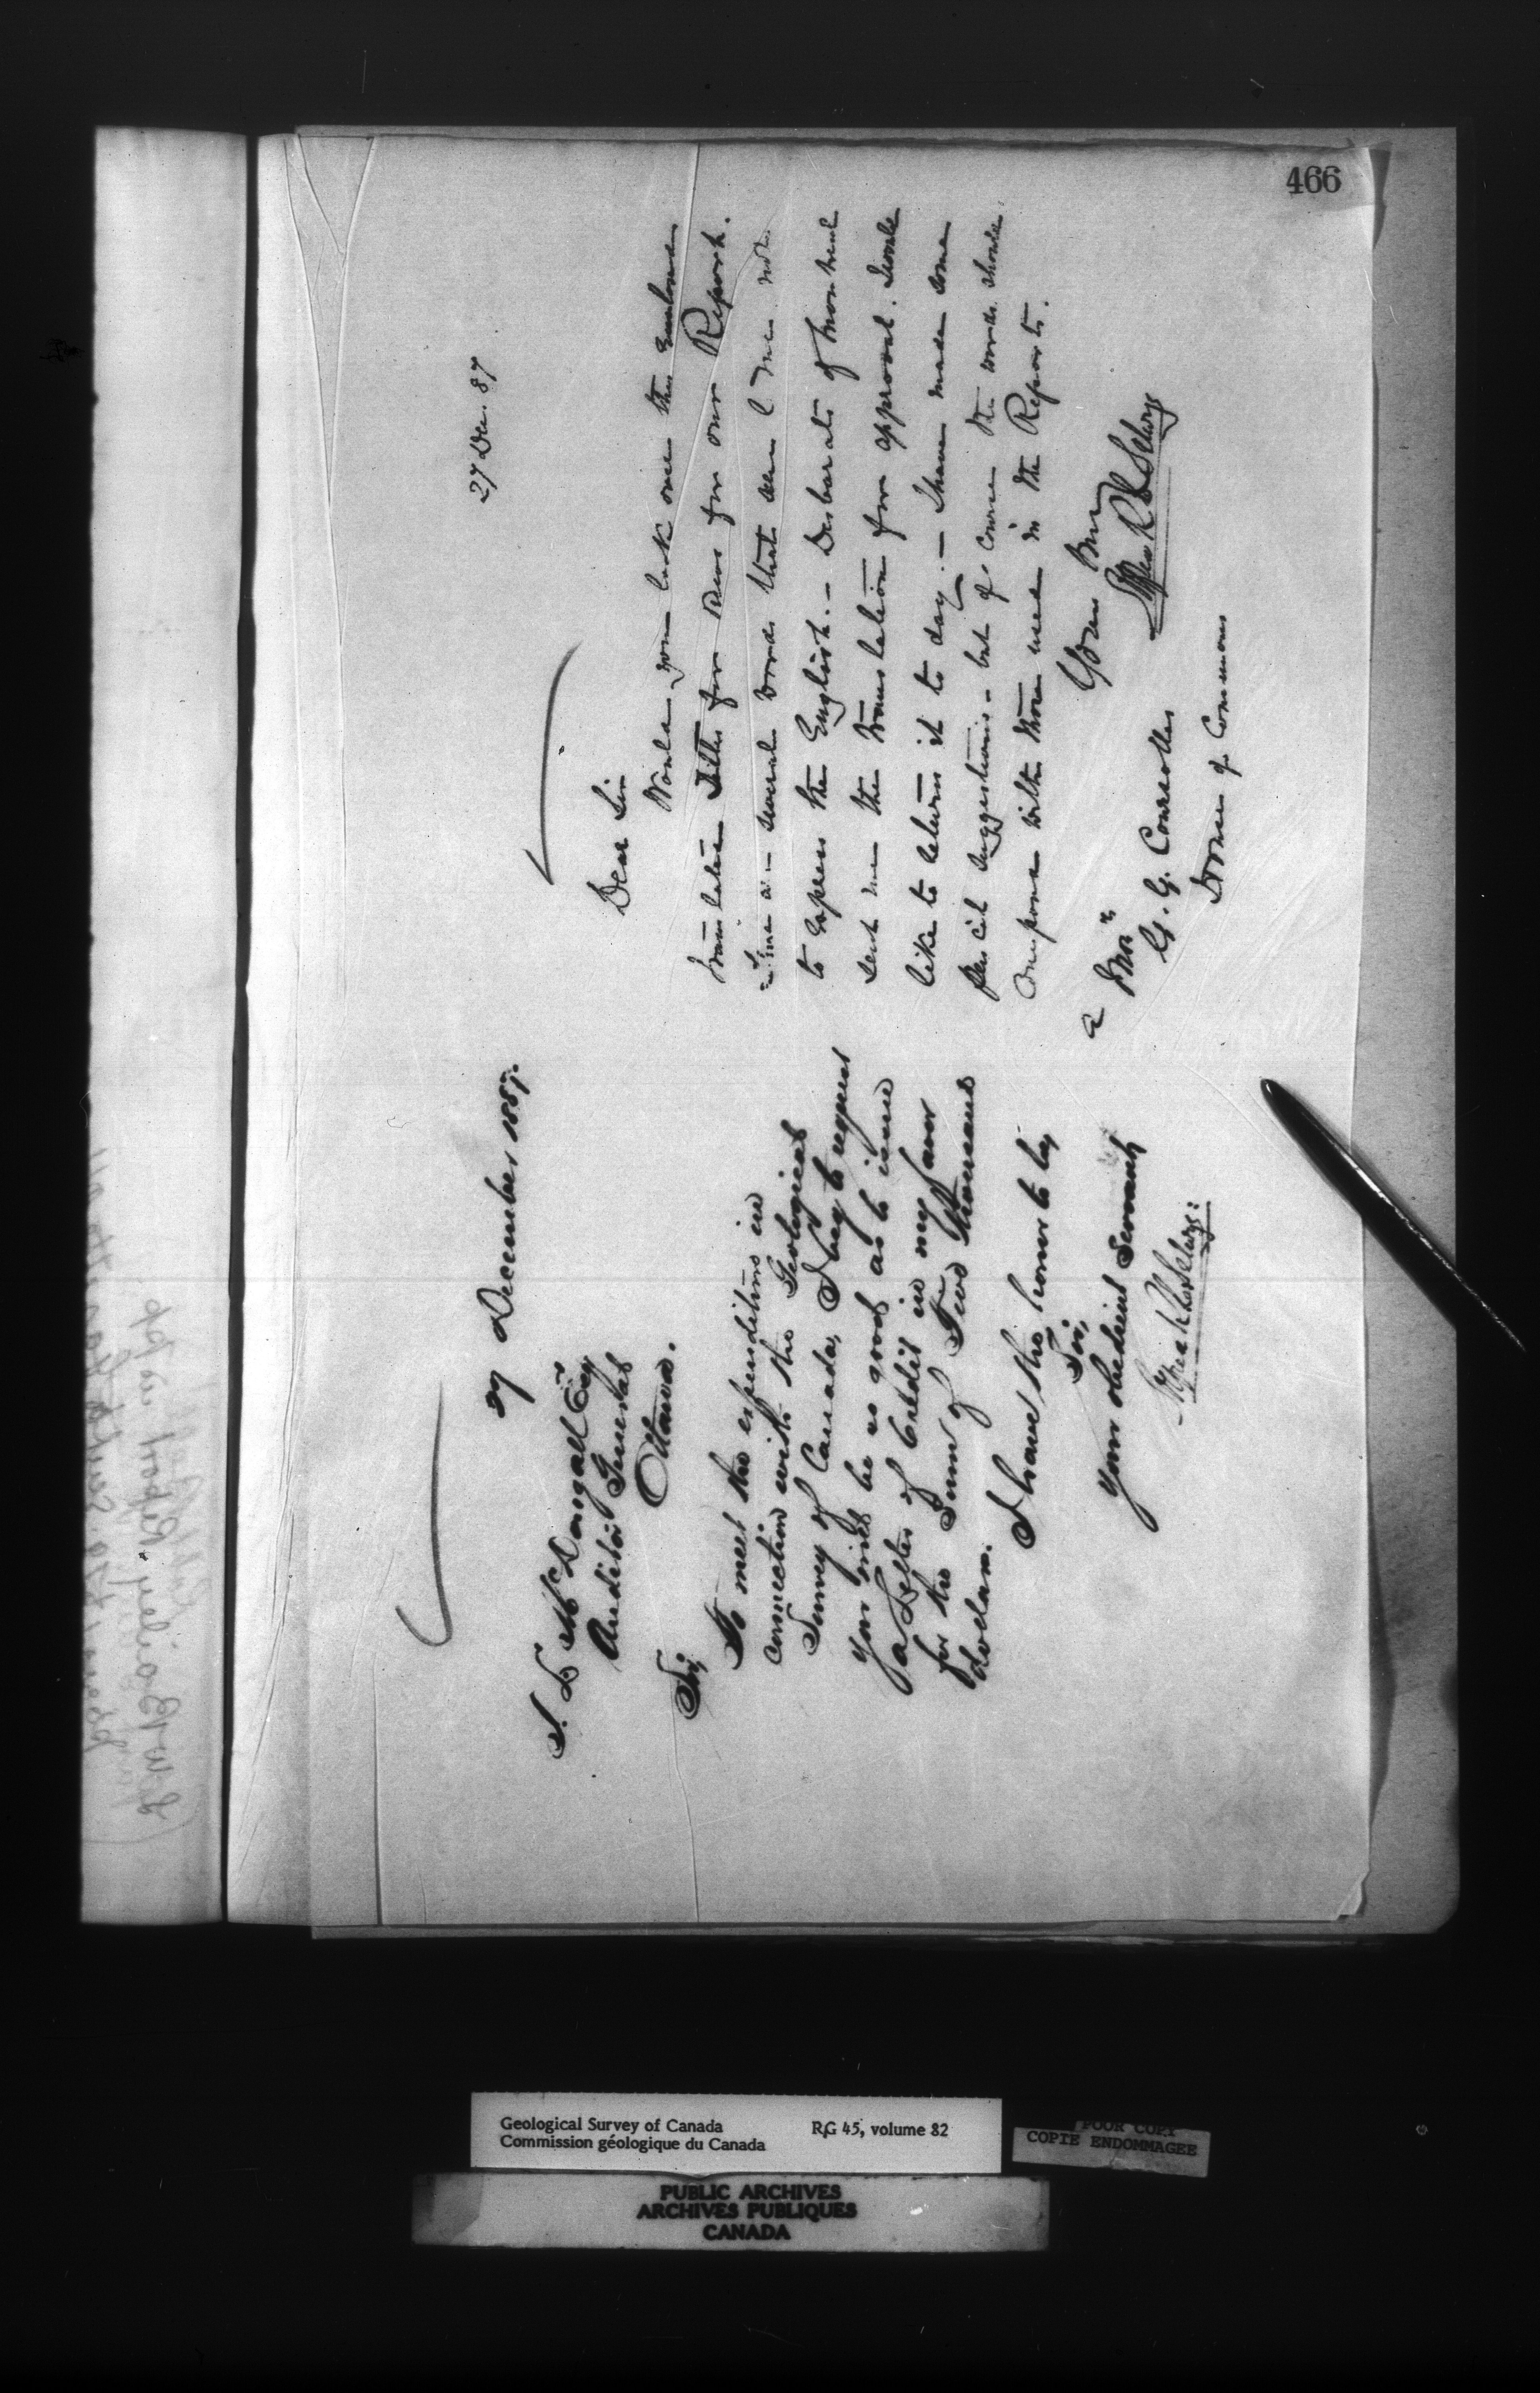 466
27 December 1887.
J. L. McDougall Esqr
Auditor General
Ottawa.
Sir,
To meet the expenditure in
connection with the Geological
Survey of Canada, I beg to request
you will be so good as to issue
a Letter of Credit in my favor
for the Sum of Two thousand
dollars.
I have the honor to be,
Sir,
Your obedient Servant,
Alfred R C Selwyn
27 Dec. 87
Dear Sir
Would you look over the enclosed
translation for our Report.
several words that seem to me not
to express the English. - Desbarats of Montreal
sent me the translation for approval. I would
like to return it to day. - I have made some
pencil suggestions - but of course the words should
with those used in the Reports.
Yours
Alfred R C Selwyn
A
House of Commons
Geological Survey of Canada
Commission géologique du Canada
RG 45, volume 82
POOR COPY
COPIE ENDOMMAGEE
PUBLIC ARCHIVES
ARCHIVES PUBLIQUES
CANADA